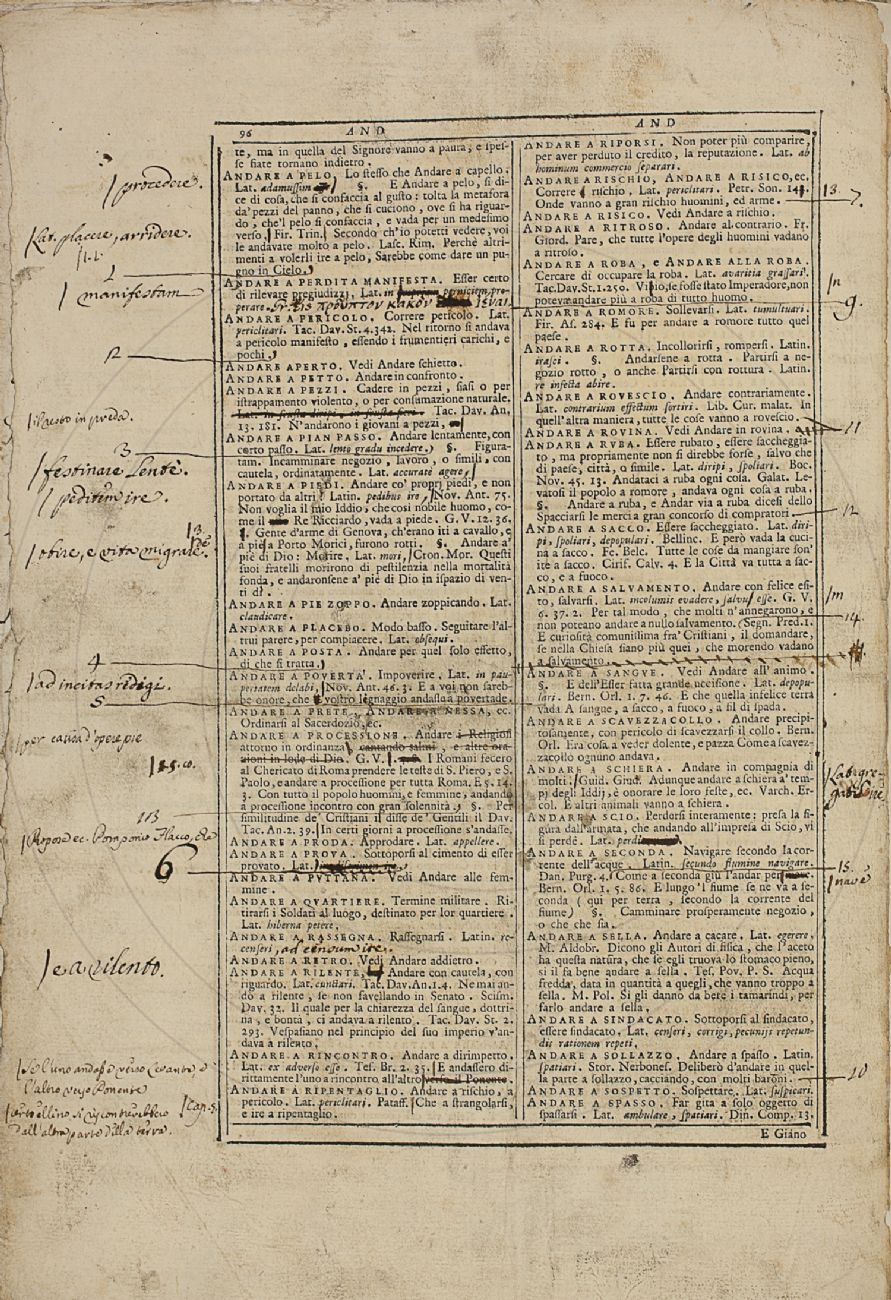 96 AND AND
te, ma in quella del Signore vanno a paura, e spes-
se fiate tornano indietro.
ANDARE A PELO, Lo stesso che Andare a capello.
Lat. adamussim §. E Andare a pelo, si di-
ce di cosa, che si confaccia al gusto: tolta la metafora
da' pezzi del panno, che si cuciono, ove si ha riguar-
do, che'l pelo si confaccia, e vada per un medesimo
verso. Fir. Trin. Secondo ch'io potetti vedere, voi
le andavate molto a pelo. Lasc. Rim. Perchè altri-
menti a volerli ire a pelo, Sarebbe come dare un pu-
gno in Cielo.
ANDARE A PERDITA MANIFESTA. Esser certo
di rilevare pregiudizj. Lat. in perniciem pro-
perare.
ANDARE A PERICOLO. Correre pericolo. Lat.
periclitari. Tac. Dav. St. 4. 342. Nel ritorno si andava
a pericolo manifesto, essendo i frumentieri carichi, e
pochi.
ANDARE APERTO. Vedi Andare schietto.
ANDARE A PETTO. Andare in confronto.
ANDARE A PEZZI. Cadere in pezzi, sia o per
istrappamento violento, o per consumazione naturale.
Lat. in frusta diripi, in frusta fieri. Tac. Dav. An.
13. 181. N'andarono i giovani a pezzi,
ANDARE A PIAN PASSO. Andare lentamente, con
corto passo. Lat. lento gradu incedere. §. Figura-
tam. Incamminare negozio, lavoro, o simili, con
cautela, ordinatamente. Lat. accuratè agere.
ANDARE A PIEDI. Andare co' proprj piedi, e non
portato da altri. Latin. pedibus ire, Nov. Ant. 75.
Non voglia il mio Iddio, che così nobile huomo, co-
me il Re Ricciardo, vada a piede. G. V. 12. 36.
§. Gente d'arme di Genova, ch'erano iti a cavallo, e
a pie a Porto Morici, furono rotti. §. Andare a'
piè di Dio: Morire. Lat. mori, Cron. Mor. Questi
suoi fratelli morirono di pestilenzia nella mortalità
fonda, e andaronsene a' piè di Dio in ispazio di ven-
ti dì.
ANDARE A PIE ZOPPO. Andare zoppicando. Lat.
claudicare.
ANDARE A PLACEBO. Modo basso. Seguitare l'al-
trui parere, per compiacere. Lat. obsequi.
ANDARE A POSTA. Andare per quel solo effetto,
di che si tratta.
ANDARE A POVERTA'. Impoverire. Lat. in pau-
pertatem delabi, Nov. Ant. 46. 3. E a voi non sareb-
be onore, che vostro legnaggio andasse a povertade.
ANDARE A PRETE, ANDARE A MESSA, ec.
Ordinarsi al Sacerdozio, ec.
ANDARE A PROCESSIONE. Andare i Religiosi
attorno in ordinanza, cantando salmi, e altre ora-
zioni in lode di Dio. G. V. I Romani fecero
al Chericato di Roma prendere le teste di S. Piero, e S.
Paolo, e andare a processione per tutta Roma. E 5. 14.
3. Con tutto il popolo huomini, e femmine, andando
a processione incontro con gran solennità. §. Per
similitudine de' Cristiani il disse de' Gentili il Dav.
Tac. An. 2. 39. In certi giorni a processione s'andasse.
ANDARE A PRODA. Approdare. Lat. appellere.
ANDARE A PROVA. Sottoporsi al cimento di esser
provato. Lat.
ANDARE A PUTTANA. Vedi Andare alle fem-
mine.
ANDARE A QUARTIERE. Termine militare. Ri-
tirarsi i Soldati al luogo, destinato per lor quartiere.
Lat. hiberna petere.
ANDARE A RASSEGNA. Rassegnarsi. Latin. re-
censeri, ad censum ire.
ANDARE A RETRO. Vedi Andare addietro.
ANDARE A RILENTE, Andare con cautela, con
riguardo. Lat. cunctari. Tac. Dav. An. 1. 4. Ne mai an-
dò a rilente, se non favellando in Senato. Scism.
Dav. 32. Il quale per la chiarezza del sangue, dottri-
na, e bontà, ci andava a rilento. Tac. Dav. St. 2.
293. Vespasiano nel principio del suo imperio v'an-
dava a rilento.
ANDARE A RINCONTRO. Andare a dirimpetto.
Lat. ex adverso esse. Tes. Br. 2. 35. E andassero di-
rittamente l'uno a rincontro all'altro verso il Ponente.
ANDARE A RIPENTAGLIO. Andare a rischio, a
pericolo. Lat. periclitari. Pataff. Che a strangolarsi,
e ire a ripentaglio.
ANDARE A RIPORSI. Non poter più comparire,
per aver perduto il credito, la reputazione. Lat. ab
hominum commercio separari.
ANDARE A RISCHIO, ANDARE A RISICO, ec.
Correre rischio, Lat. periclitari. Petr. Son. 141.
Onde vanno a gran rischio huomini, ed arme.
ANDARE A RISICO. Vedi Andare a rischio.
ANDARE A RITROSO. Andare al contrario. Fr.
Giord. Pare, che tutte l'opere degli huomini vadano
a ritroso.
ANDARE A ROBA, e ANDARE ALLA ROBA.
Cercare di occupare la roba. Lat. avaritia grassari.
Tac. Dav. St. 1. 250. Vinio, se fosse stato Imperadore, non
potevamandare più a roba di tutto huomo.
ANDARE A ROMORE. Sollevarsi. Lat. tumultuari.
Fir. As. 284. E fu per andare a romore tutto quel
paese.
ANDARE A ROTTA. Incollorirsi, rompersi. Latin.
irasci. §. Andarsene a rotta. Partirsi a ne-
gozio rotto, o anche Partirsi con rottura. Latin.
re infecta abire.
ANDARE A ROVESCIO. Andare contrariamente.
Lat. contrarium effectum sortiri. Lib. Cur. malat. In
quell'altra maniera, tutte le cose vanno a rovescio.
ANDARE A ROVINA. Vedi Andare in rovina.
ANDARE A RUBA. Essere rubato, essere saccheggia-
to, ma propriamente non si direbbe forse, salvo che
di paese, città, o simile. Lat. diripi, spoliari. Boc.
Nov. 45. 13. Andataci a ruba ogni cosa. Galat. Le-
vatosi il popolo a romore, andava ogni cosa a ruba.
§. Andare a ruba, e Andar via a ruba dicesi dello
Spacciarsi le merci a gran concorso di compratori.
ANDARE A SACCO. Essere saccheggiato. Lat. diri-
pi, spoliari, depopulari. Bellinc. E però vada la cuci-
na a sacco. Fe. Belc. Tutte le cose da mangiare son'
ite a sacco. Cirif. Calv. 4. E la Città va tutta a sac-
co, e a fuoco.
ANDARE A SALVAMENTO. Andare con felice esi-
to, salvarsi. Lat. incolumis evadere, salvus esse. G. V.
6. 37. 2. Per tal modo, che molti n'annegarono, e
non poteano andare a nullo salvamento. Segn. Pred. 1.
E curiosità comunissima fra' Cristiani, il domandare,
se nella Chiesa siano più quei, che morendo vadano
a salvamento.
ANDARE A SANGUE. Vedi Andare all'animo.
§. E dell'Esser fatta grande uccisione. Lat. depopu-
lari. Bern. Orl. 1. 7. 46. E che quella infelice terra
vada A sangue, a sacco, a fuoco, a fil di spada.
ANDARE A SCAVEZZACOLLO. Andare precipi-
tosamente, con pericolo di scavezzarsi il collo. Bern.
Orl. Era cosa a veder dolente, e pazza Come a scavez-
zacollo ognuno andava.
ANDARE A SCHIERA. Andare in compagnia di
molti. Guid. Giud. Adunque andare a schiera a' tem-
pj degli Iddij, è onorare le loro feste, ec. Varch. Er-
col. E altri animali vanno a schiera.
ANDARE A SCIO. Perdersi interamente: presa la fi-
gura dall'armata, che andando all'impresa di Scio, vi
si perdé. Lat.
ANDARE A SECONDA. Navigare secondo la cor-
rente dell'acque. Latin. secundo flumine navigare.
Dan. Purg. 4. Come a seconda giù l'andar per
Bern. Orl. 1. 5. 86. E lungo 'l fiume se ne va a se-
conda (qui per terra, secondo la corrente del
fiume) §. Camminare prosperamente negozio,
o che che sia.
ANDARE A SELLA. Andare a cacare. Lat. egerere.
M. Aldobr. Dicono gli Autori di fisica, che l'aceto
ha questa natura, che se egli truova lo stomaco pieno,
si il fa bene andare a sella. Tes. Pov. P. S. Acqua
fredda, data in quantità a quegli, che vanno troppo a
sella. M. Pol. Si gli danno da bere i tamarindi, per
farlo andare a sella.
ANDARE A SINDACATO. Sottoporsi al sindacato,
essere sindacato. Lat. censeri, corrigi, pecunijs repetun-
dis rationem repeti.
ANDARE A SOLLAZZO. Andare a spasso. Latin.
spatiari. Stor. Nerbones. Deliberò d'andare in quel-
la parte a sollazzo, cacciando, con molti baroni.
ANDARE A SOSPETTO. Sospettare. Lat. suspicari.
ANDARE A SPASSO. Far gita a solo oggetto di
spassarsi. Lat. ambulare, spatiari. Din. Comp. 13.
E Giano
procedere.
Lat. placere, arridere.
1
manifestam
2
3
festinare lentè.
peditem ire.
obire, e vita migrare.
4
ad incitas redigi.
5
per causa d'opere pie
6
e a rilento.
Se l'uno andasse verso Levante, e
l'altro verso Ponente
Cap. 5.
dall'altra parte della terra.
13.
7.
In
9.
11
12
Im
14.
15.
nave
10